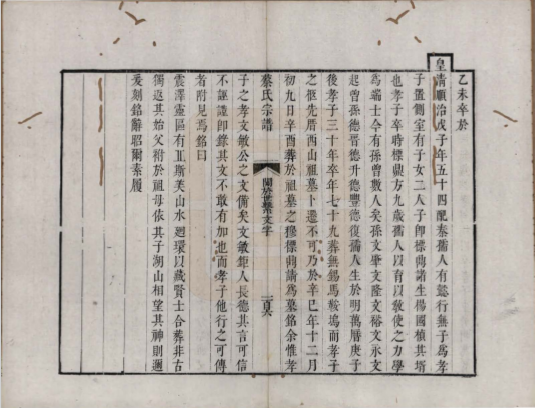 乙未卒於
皇清順治戊子年五十四配秦孺人有懿行無子爲孝
子置側室有子女二人子卽標鼎諸生楊國楨其壻
也孝子卒時標鼎方九歲孺人以育以敎使之力學
爲端士今有孫曾數人矣孫文肇文隆文裕文永文
起曾孫德晉德升德豐德復孺人生於明萬曆庚子
後孝子三十年卒年七十九葬無錫馬鞍塢而孝子
之柩先厝西山祖墓卜遷不可乃於辛巳年十二月
初九日辛酉葬於祖墓之穆標鼎請爲墓銘余惟孝
蔡氏宗譜
關於世系文字
子之孝文敏公之文備矣文敏鉅人長德其言可信
不誣謹卽錄其文不敢有加也而孝子他行之可傳
者附見焉銘曰
震澤靈區有
美山水迴環以藏賢士合葬非古
獨返其始父祔於祖母依其子湖山相望其神則邇
爰刻銘辭昭爾素履